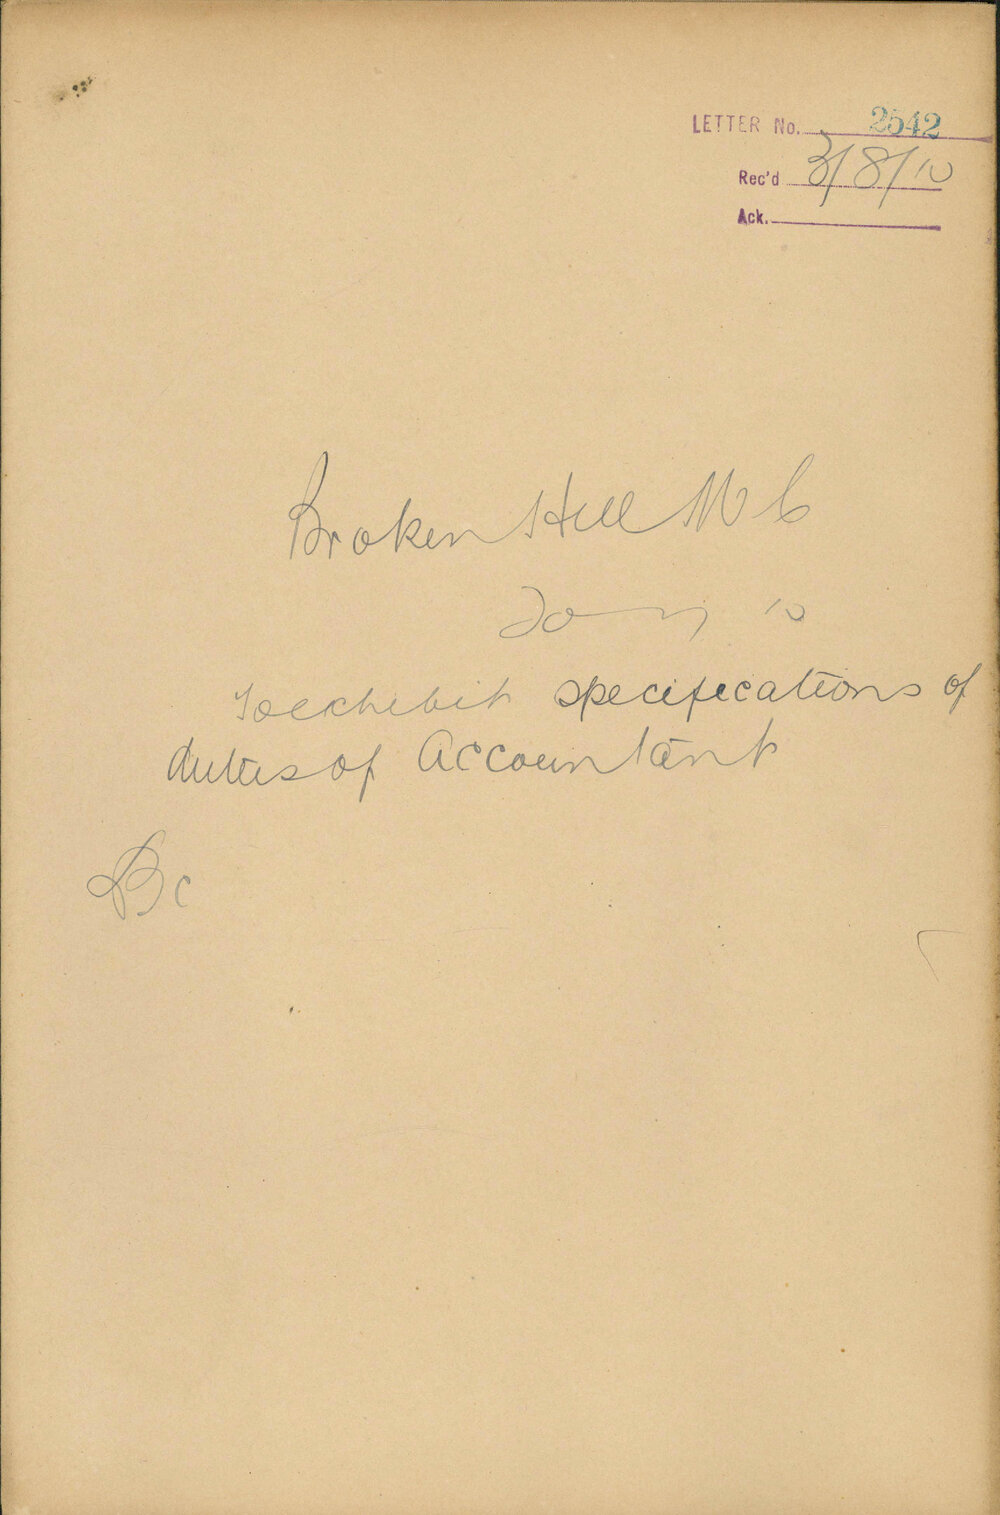 LETTER No. 2542
Rec'd 3/8/10
Ack.
Broken Hill M C
10
To exhibit specifications of
duties of Accountant
Bc